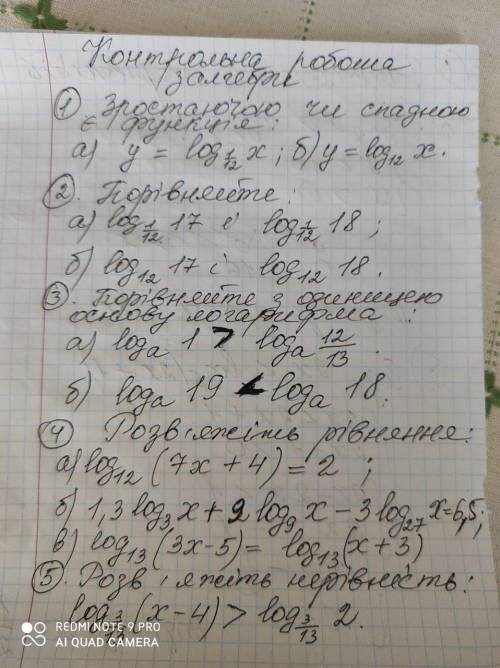 Контрольна робота
з алгебри
① Зростаючою чи спадною
є функція:
а) y = log_{1/12} x; б) y = log_{12} x.
②. Порівняйте:
а) log_{1/12} 17 і log_{1/12} 18;
б) log_{12} 17 і log_{12} 18.
③. Порівняйте з одиницею
основу логарифма:
а) log_a 1 > log_a 12/13.
б) log_a 19 < log_a 18.
④ Розв'яжіть рівняння:
а) log_{12} (7x + 4) = 2;
б) 1,3 log_3 x + 2 log_9 x − 3 log_{27} x = 6,5;
в) log_{13} (3x-5) = log_{13} (x+3)
⑤. Розв'яжіть нерівність:
log_{3/13} (x-4) > log_{3/13} 2.
REDMI NOTE 9 PRO
AI QUAD CAMERA